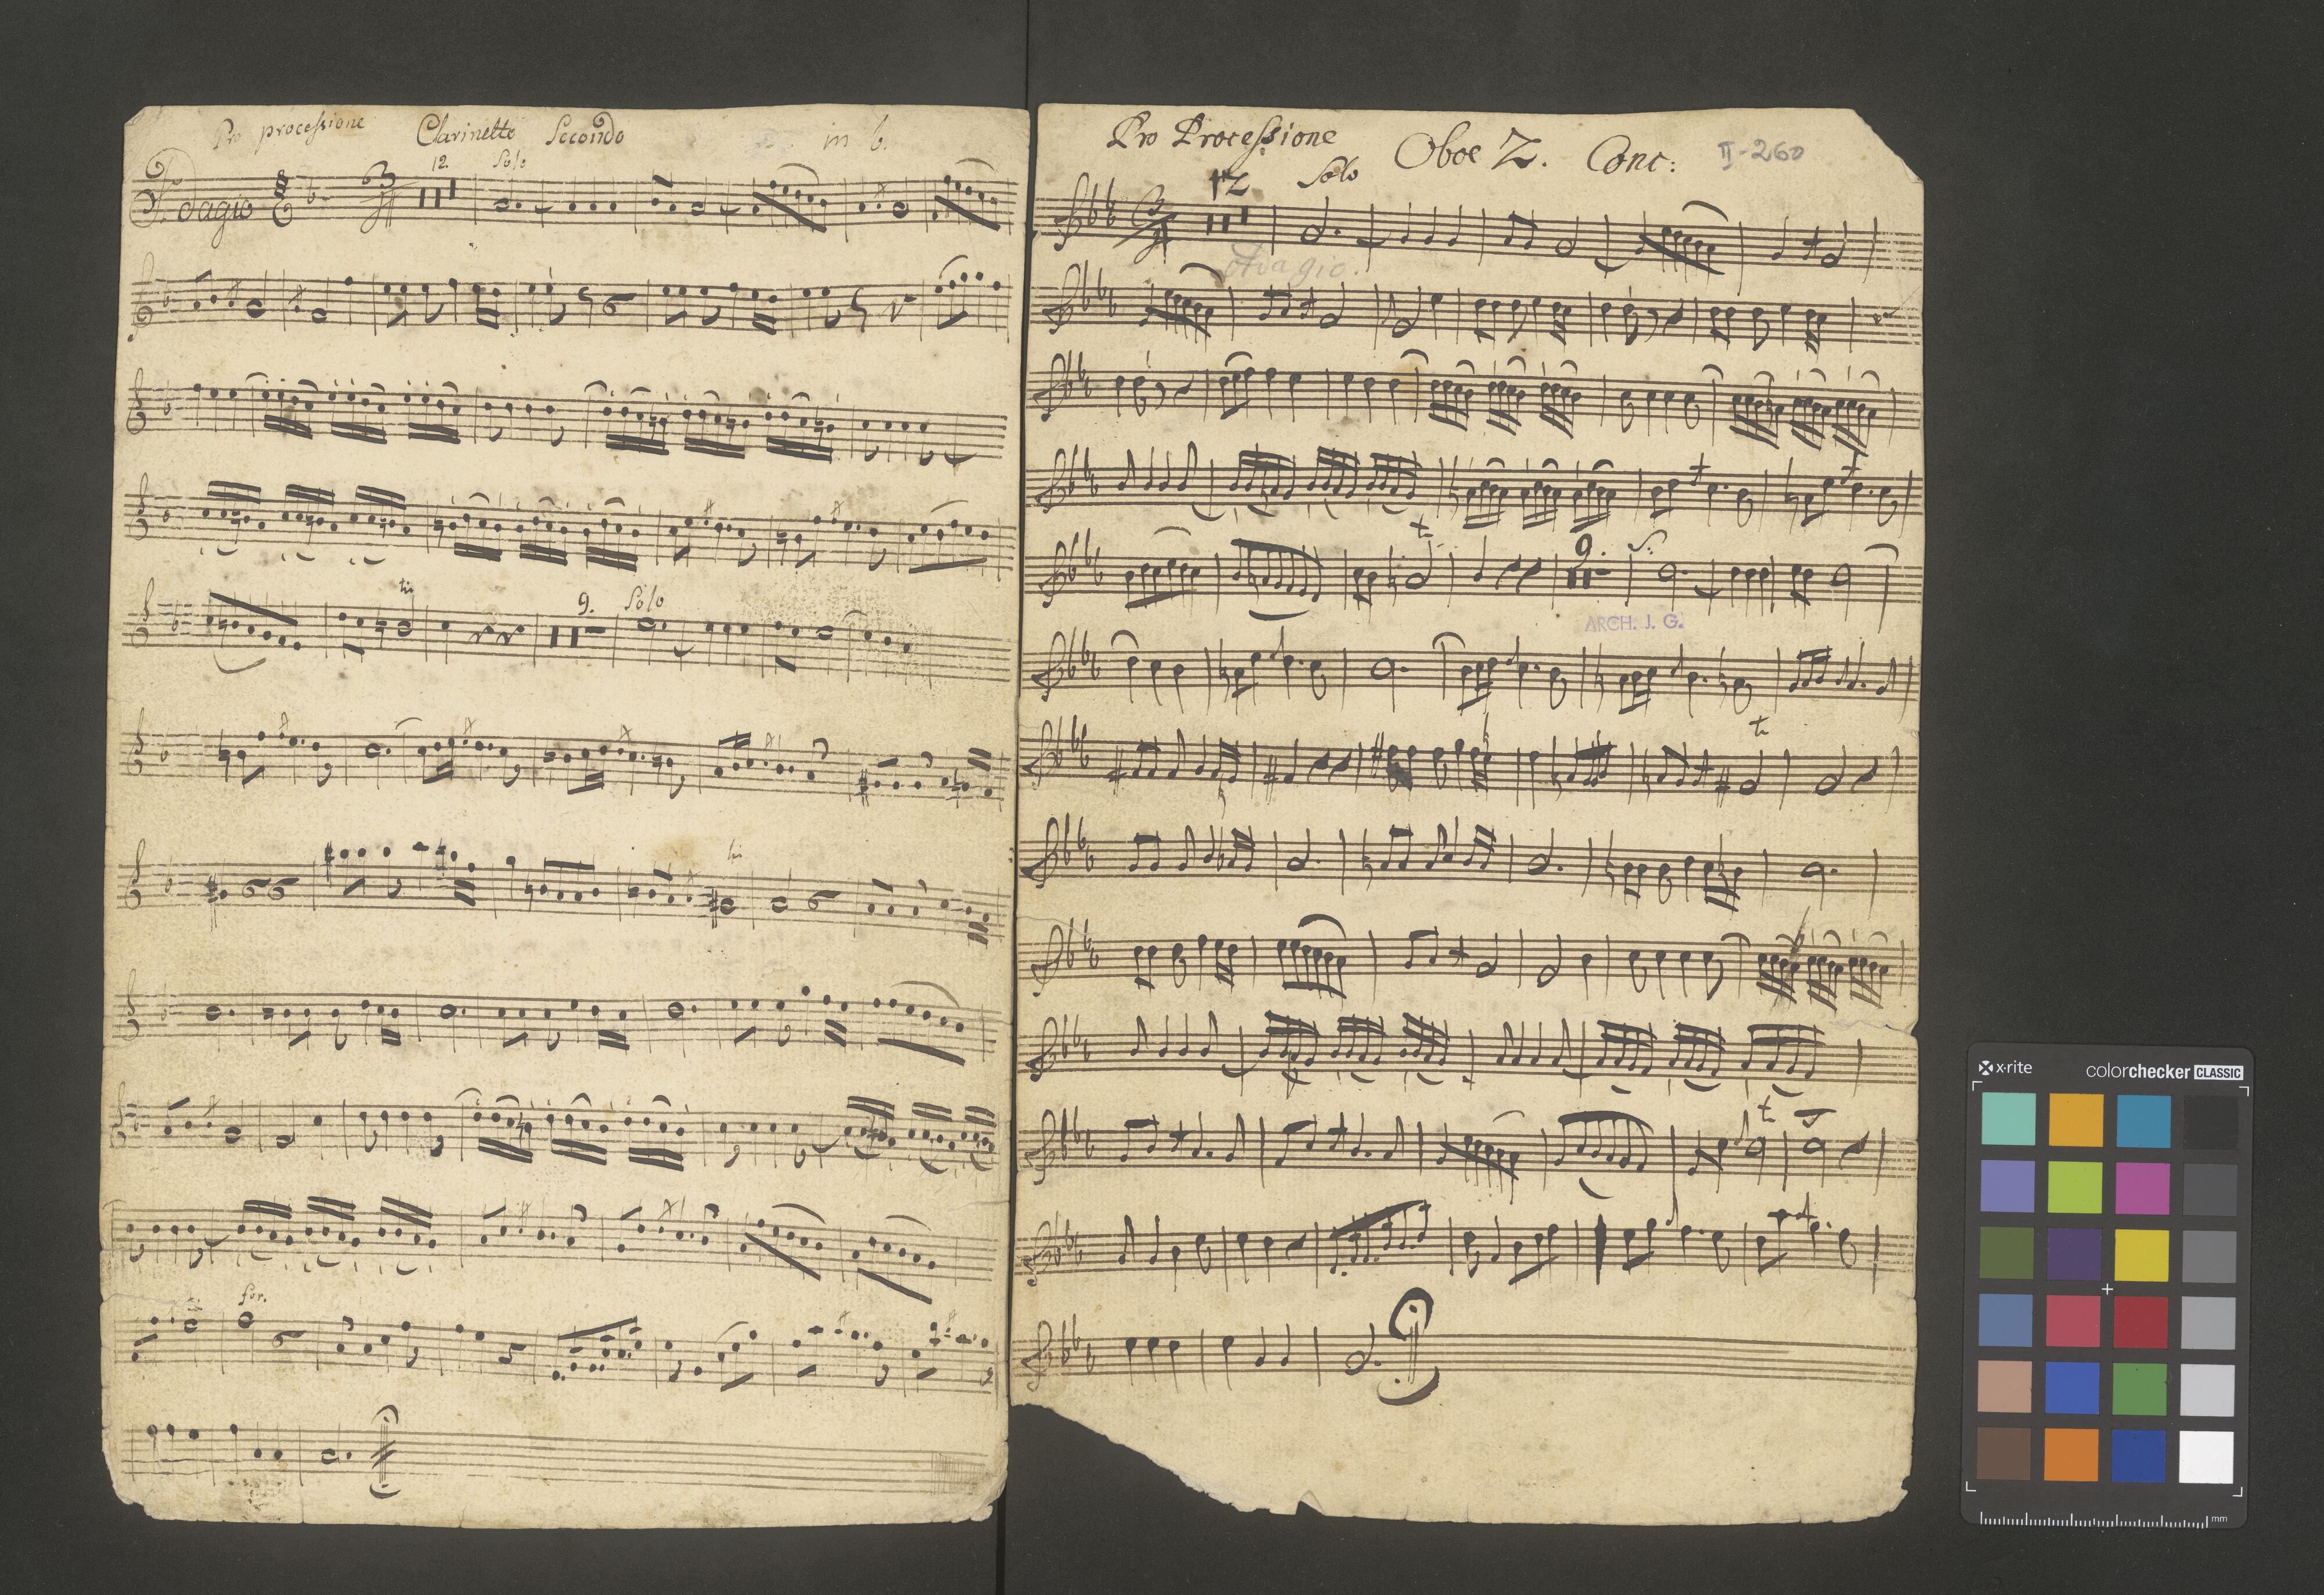 Pro processione Clarinetto Secondo in b.
12. Solo
Adagio
tr
9. Solo
tr
for.
Pro Processione Oboe 2. Conc: II-260
12 Solo
Adagio.
t
9. S:
ARCH. J. G.
t
t
x-rite colorchecker CLASSIC
mm